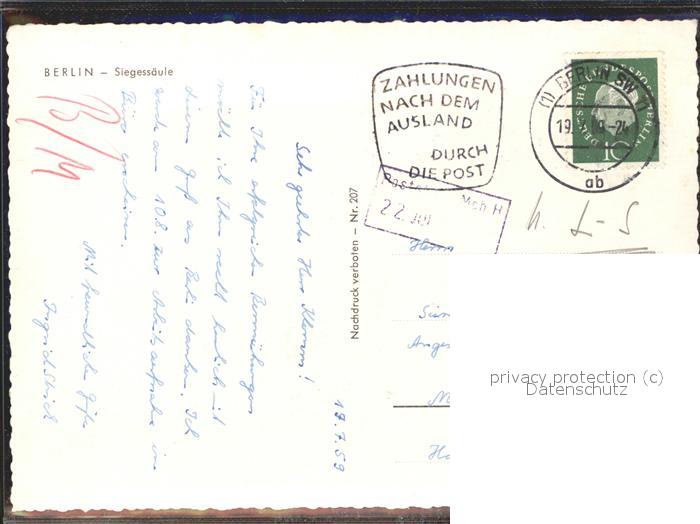 BERLIN – Siegessäule
B/M
19.7.59
Sehr geehrter Herr Klemm!
Für Ihre erfolgreichen Bemühungen
möchte ich Ihnen recht herzlich mit
diesem Gruß aus Berlin danken. Ich
werde am 10.8. zur Arbeitsaufnahme im
Büro erscheinen.
Mit freundlichen Grüßen
Ingrid
Nachdruck verboten – Nr. 207
ZAHLUNGEN
NACH DEM
AUSLAND
DURCH
DIE POST
(1) BERLIN SW
19.7.
ab
DEUTSCHE BUNDESPOST BERLIN
10
Mch H
22. JUL
Herrn
privacy protection (c)
Datenschutz